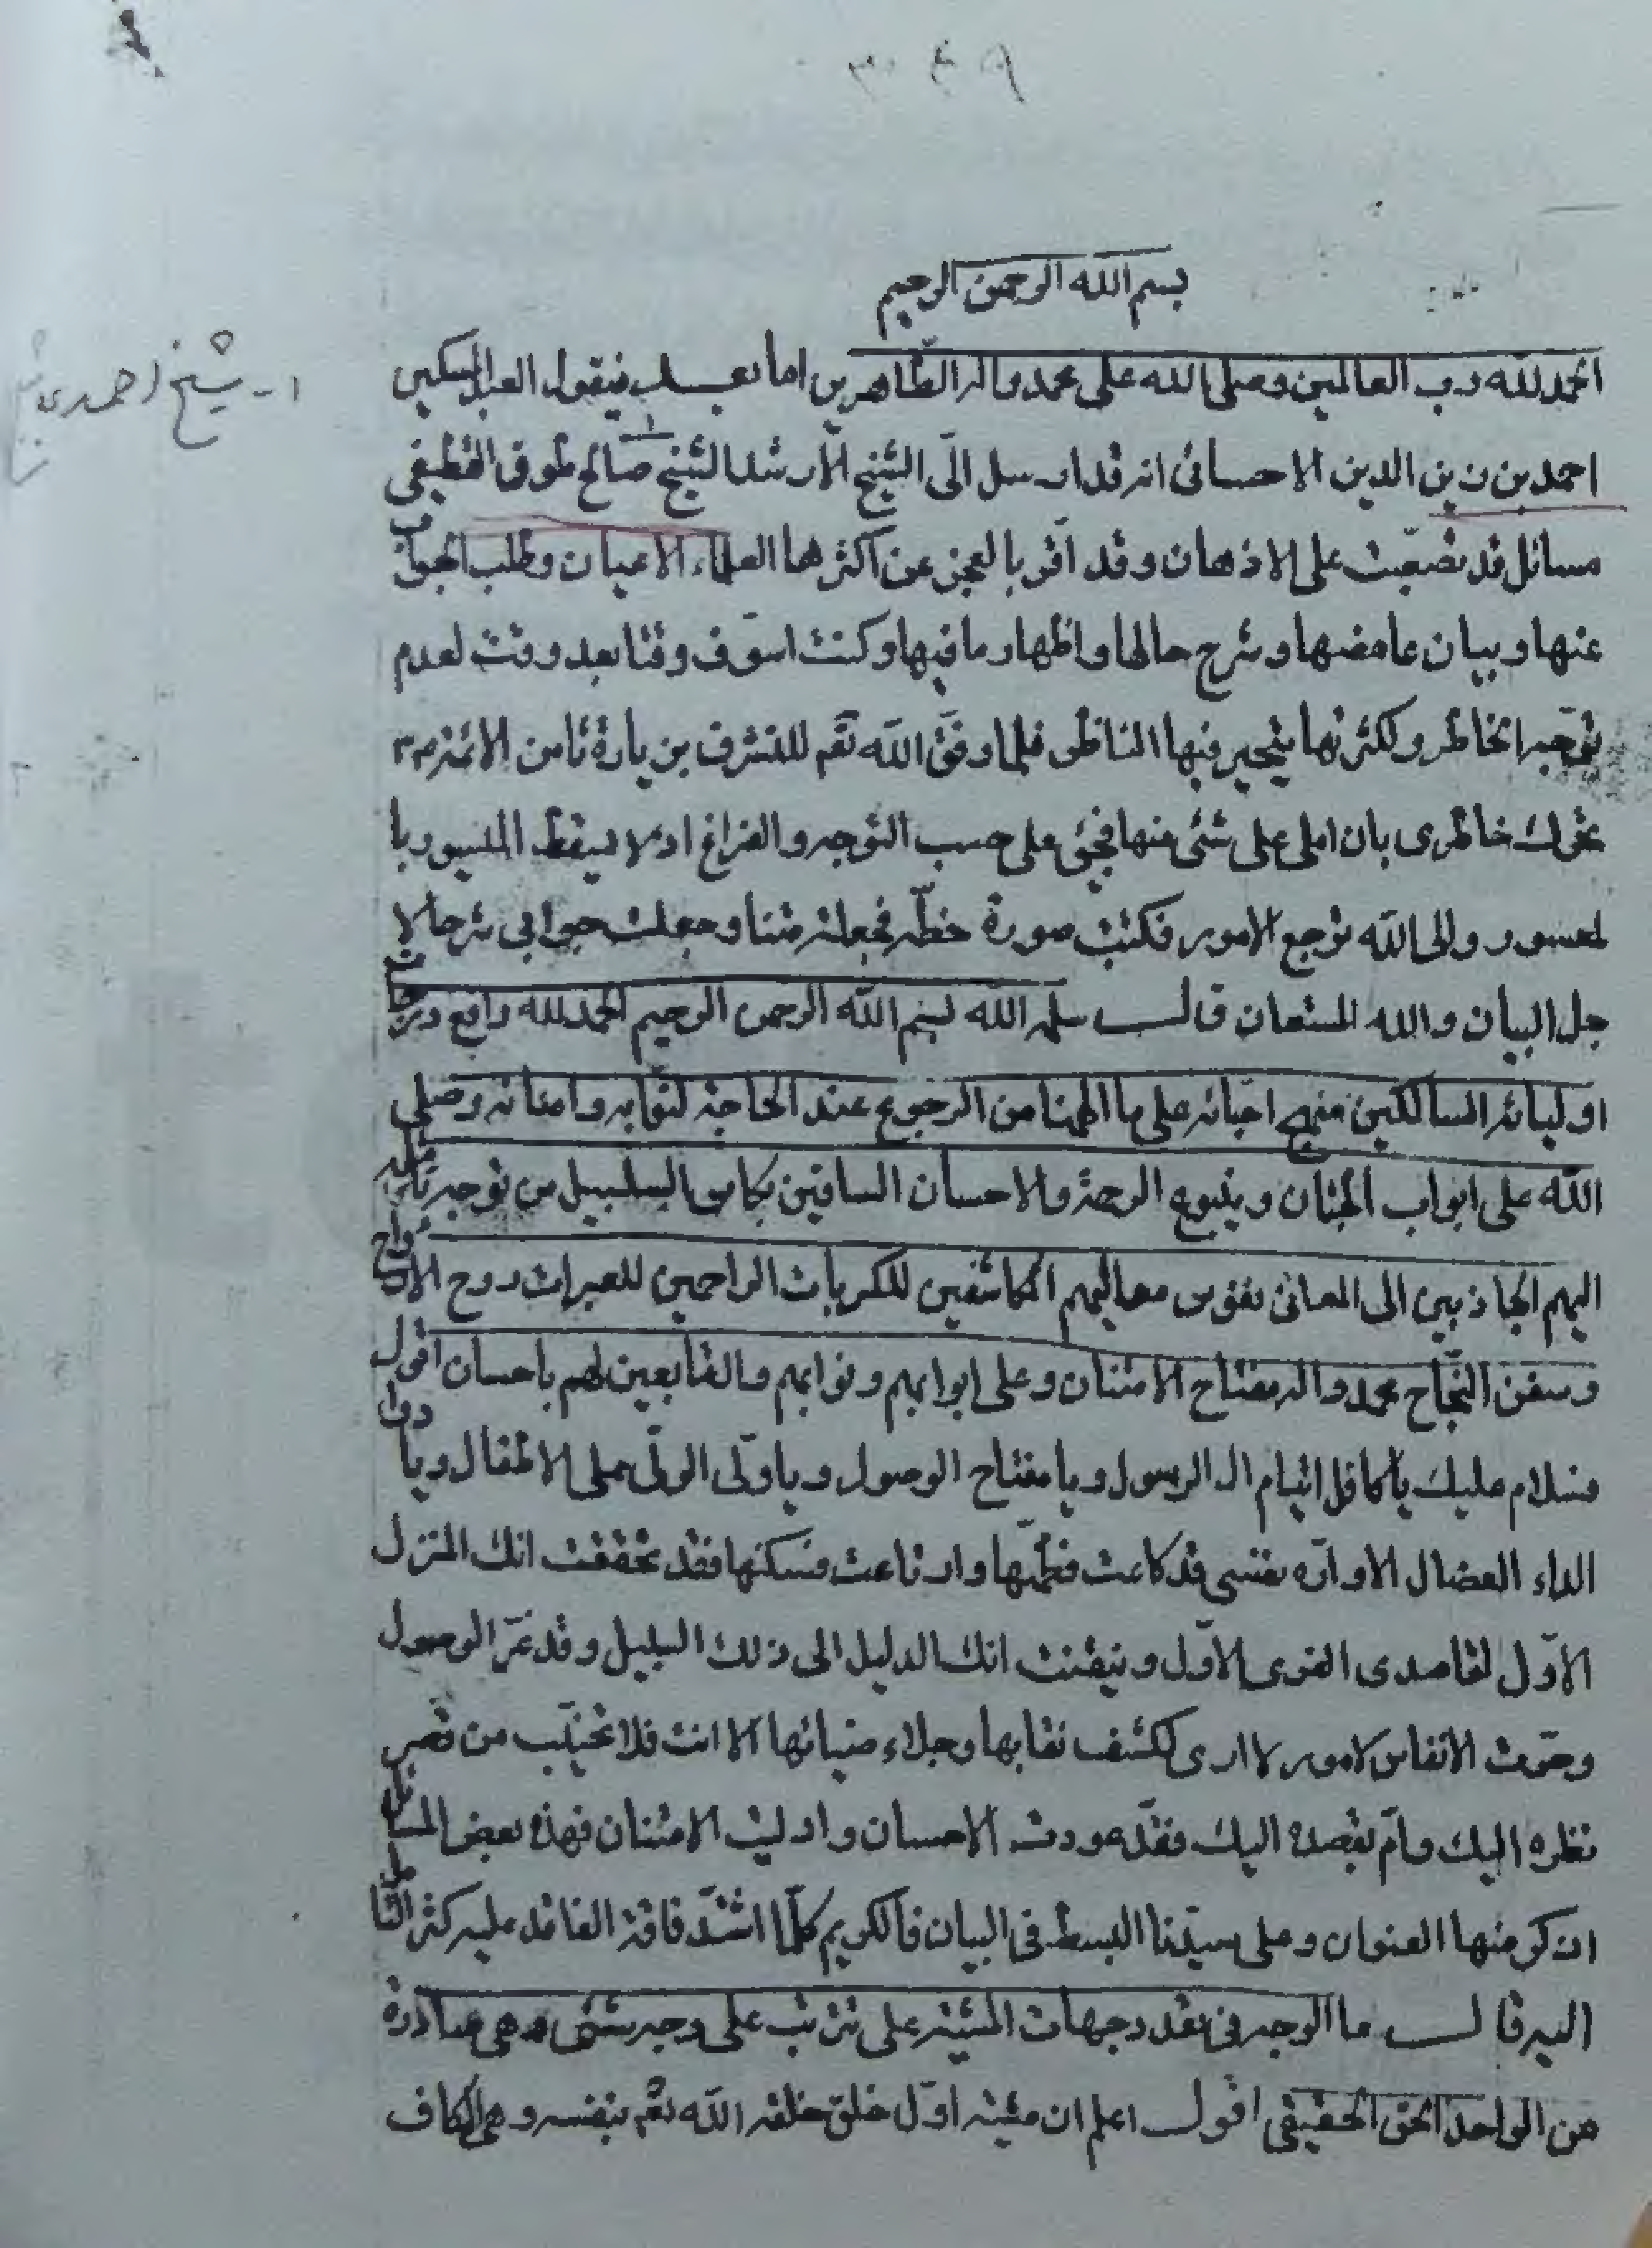 ٣٠٤٩
بسم الله الرحمن الرحيم
الحمد لله رب العالمين وصلى الله على محمد واله الطاهرين اما بعد فيقول العبد المسكين
١- شيخ احمد
احمد بن زين الدين الاحسائى انه قد ارسل الىّ الشيخ الارشد الشيخ صالح طوق القطيفى
مسائل قد تصعّبت على الاذهان وقد اقر بالعجز عن اكثرها العلماء الاعيان وطلب الجواب
عنها وبيان غامضها وشرح حالها واظهار ما فيها وكنت اسوّف وقتا بعد وقت لعدم
توجّه الخاطر ولكثرتها يتحير فيها الناظر فلما وفق الله تعم للتشرف بزيارة ثامن الائمة
تحرك خاطرى بان املى على شئ منها فجئ على حسب التوجه والفراغ اذ لا يسقط الميسور با
لمعسور والى الله ترجع الامور فكتبت صورة خطّه فجعلته متنا وجعلت جوابى شرحا لا
جل البيان والله المستعان قال سلمه الله بسم الله الرحمن الرحيم الحمد لله رافع درجات
اوليائه السالكين منهج احبّائه على ما الهمنا من الرجوع عند الحاجة لنوّابه وامنائه وصلى
الله على ابواب الجنان وينبوع الرحمة والاحسان الساقين بكاس السلسبيل من توجه بقلبه
اليهم الجاذبين الى المعانى نفوس معاليهم الكاشفين للكربات الراحمين للعبرات روح الارواح
وسفن النجّاح محمد واله مفتاح الامتنان وعلى ابوابهم ونوابهم والتابعين لهم باحسان اقول
فسلام عليك يا كافل ايتام ال الرسول ويا مفتاح الوصول ويا ولى الولى على الاطفال ويا دواء
الداء العضال الا وانّه نفسى قد كاعت فطمّها وارتاعت فسكنها فقد تحققت انك المنزل
الاوّل لقاصدى القرى الاوّل وتيقنت انك الدليل الى ذلك السبيل وقد عزّ الوصول
وحرّمت الانفاس لامور لا ارى لكشف نقابها وجلاء ضيائها الا انت فلا تخيّب من قصر
نظره اليك وامّ بقصده اليك فقد عودت الاحسان واوليت الامتنان فهذه بعض المسائل
اذكر منها العنوان وعلى سيّدنا البسط فى البيان فالكريم كلّما اشتدّ فاقة الفاقد عليه كثر التامل
اليه قال ما الوجه فى تعدد جهات المشيّة على ترتب على وجه شتى وهى صادرة
من الواحد الحق الحقيقى اقول اعلم ان مشيته اوّل خلق خلقه الله تعم بنفسه وهى الكاف